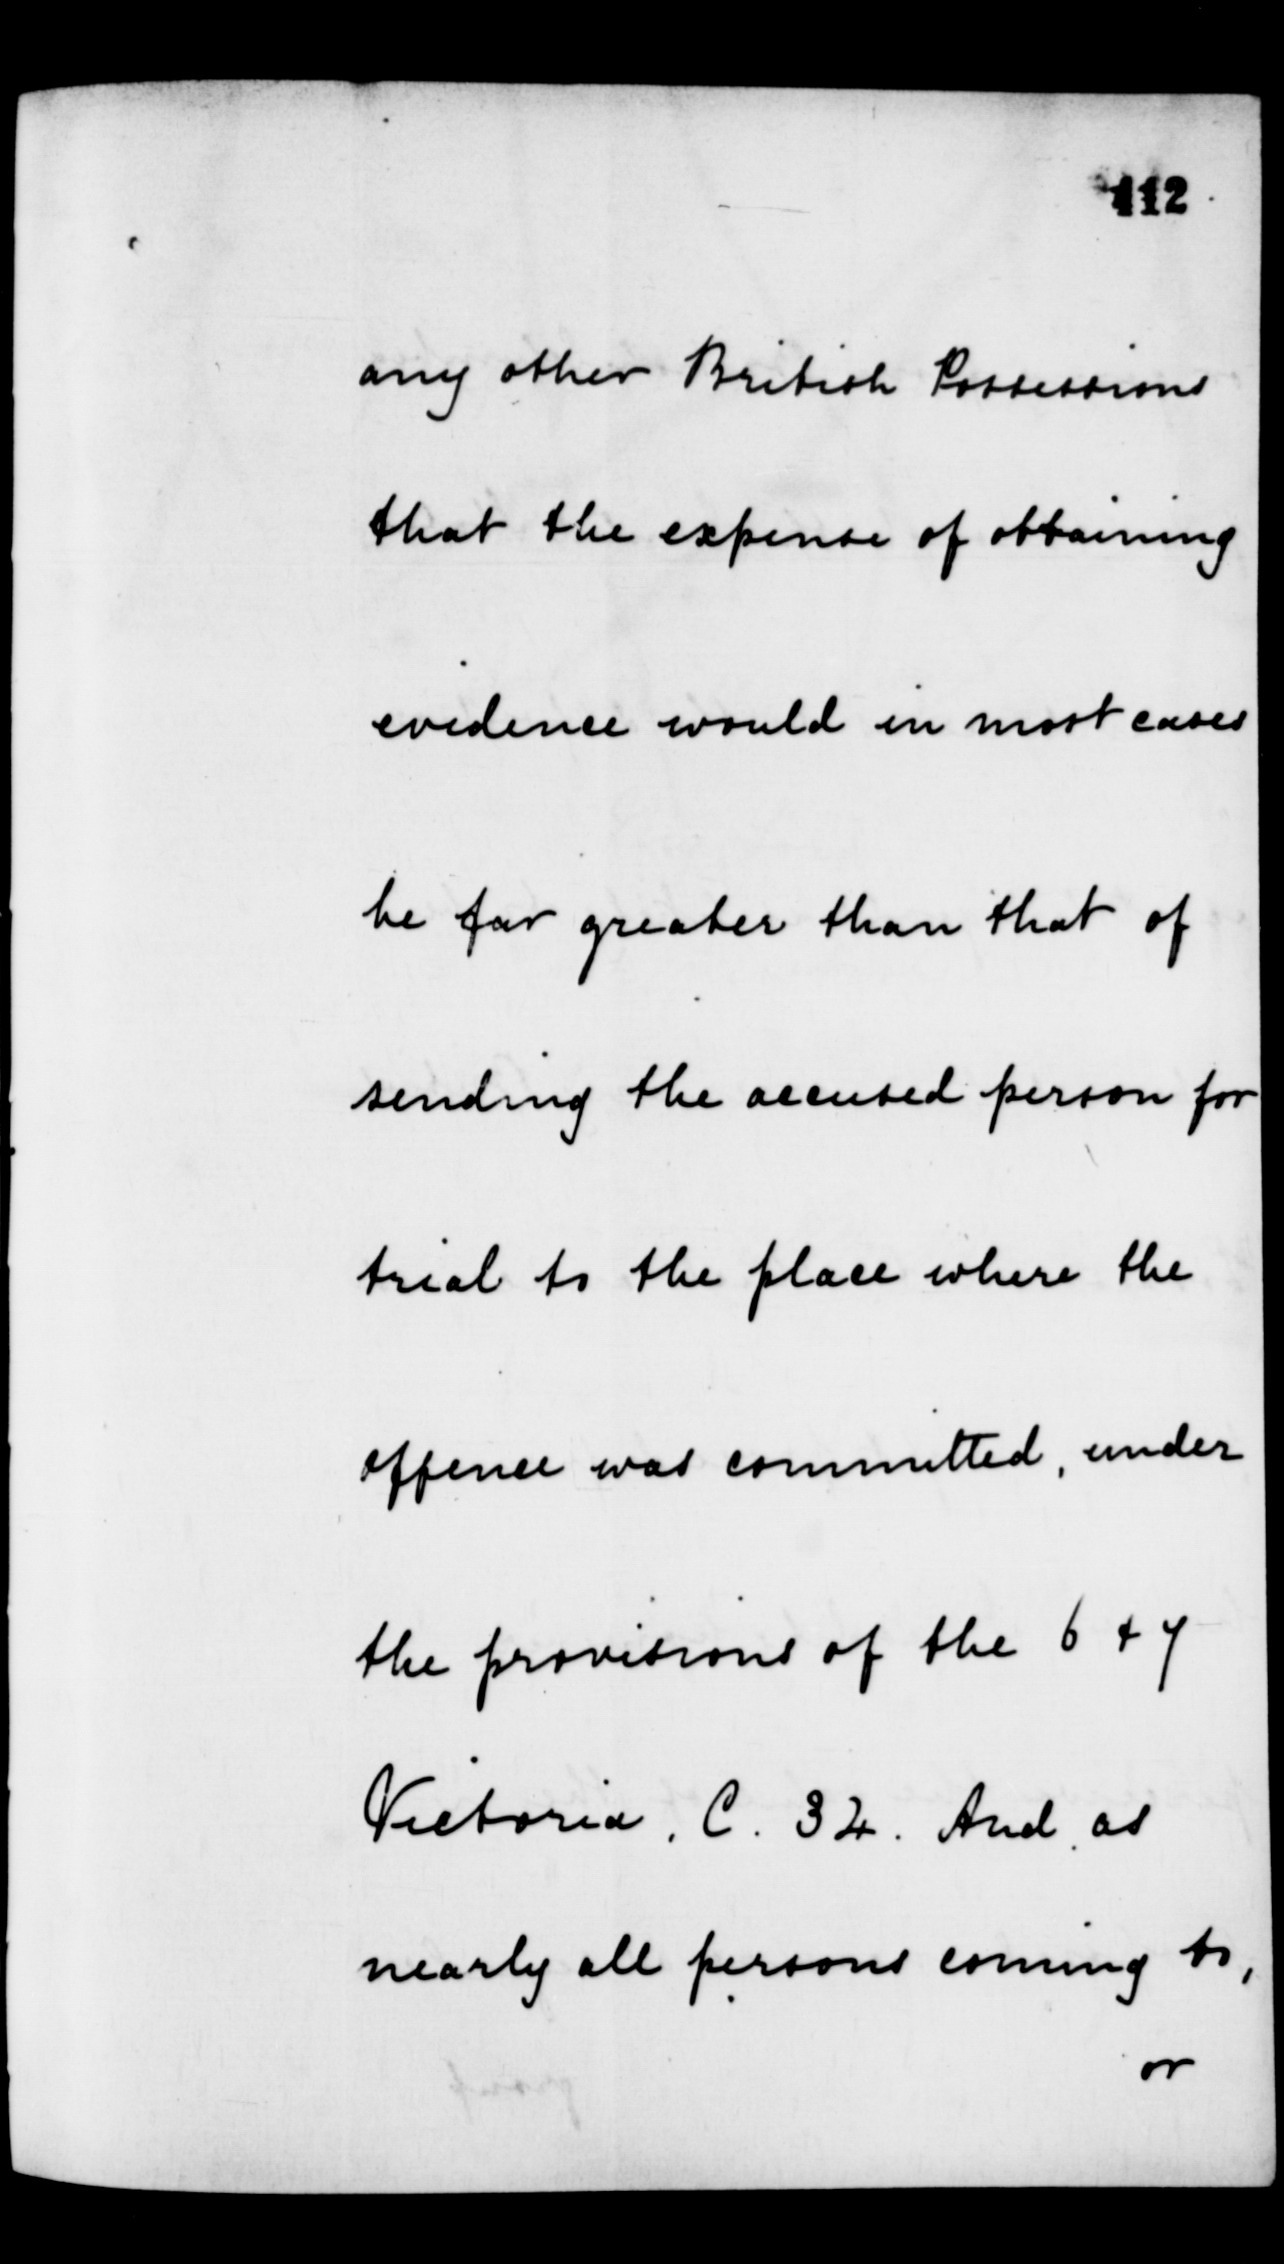 112
any other British Possessions
that the expense of obtaining
evidence would in most cases
be far greater than that of
sending the accused person for
trial to the place where the
offence was committed, under
the provisions of the 6 & 7
Victoria. C. 34. And as
nearly all persons coming to,
or